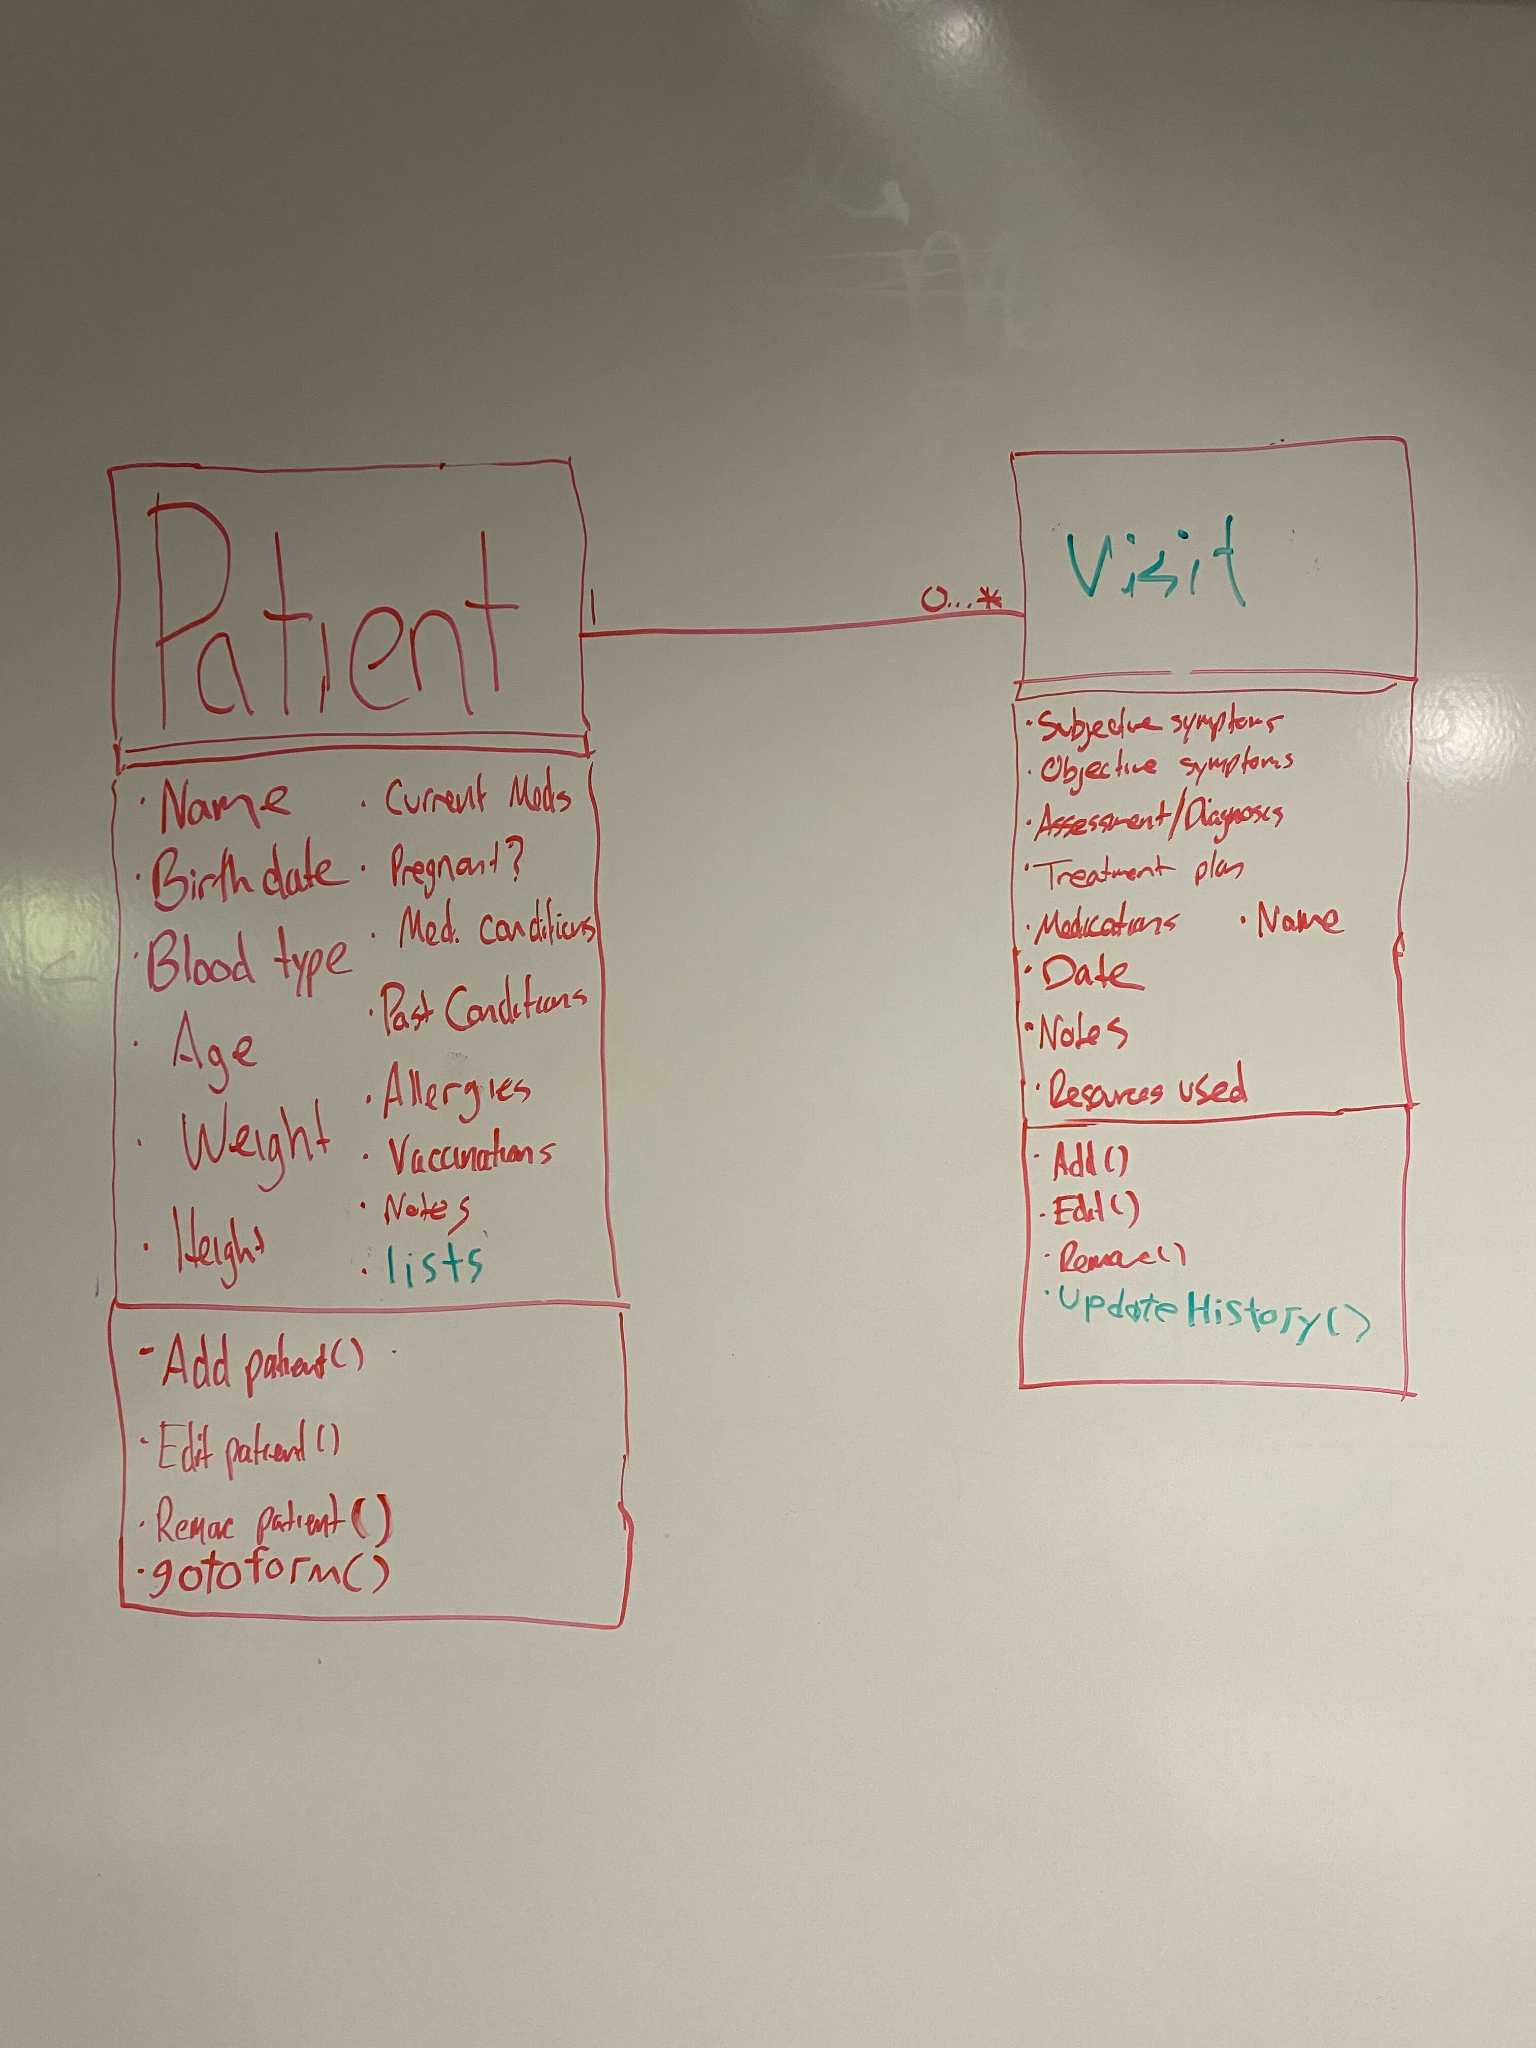 Patient
1
0...*
Visit
· Name
· Birth date
· Blood type
· Age
· Weight
· Height
· Current Meds
· Pregnant?
· Med. conditions
· Past Conditions
· Allergies
· Vaccinations
· Notes
· lists
- Add patient()
· Edit patient()
· Remove patient()
· gotoform()
· Subjective symptoms
· Objective symptoms
· Assessment/Diagnosis
· Treatment plan
· Medications · Name
· Date
· Notes
· Resources used
· Add()
· Edit()
· Remove()
· UpdateHistory()